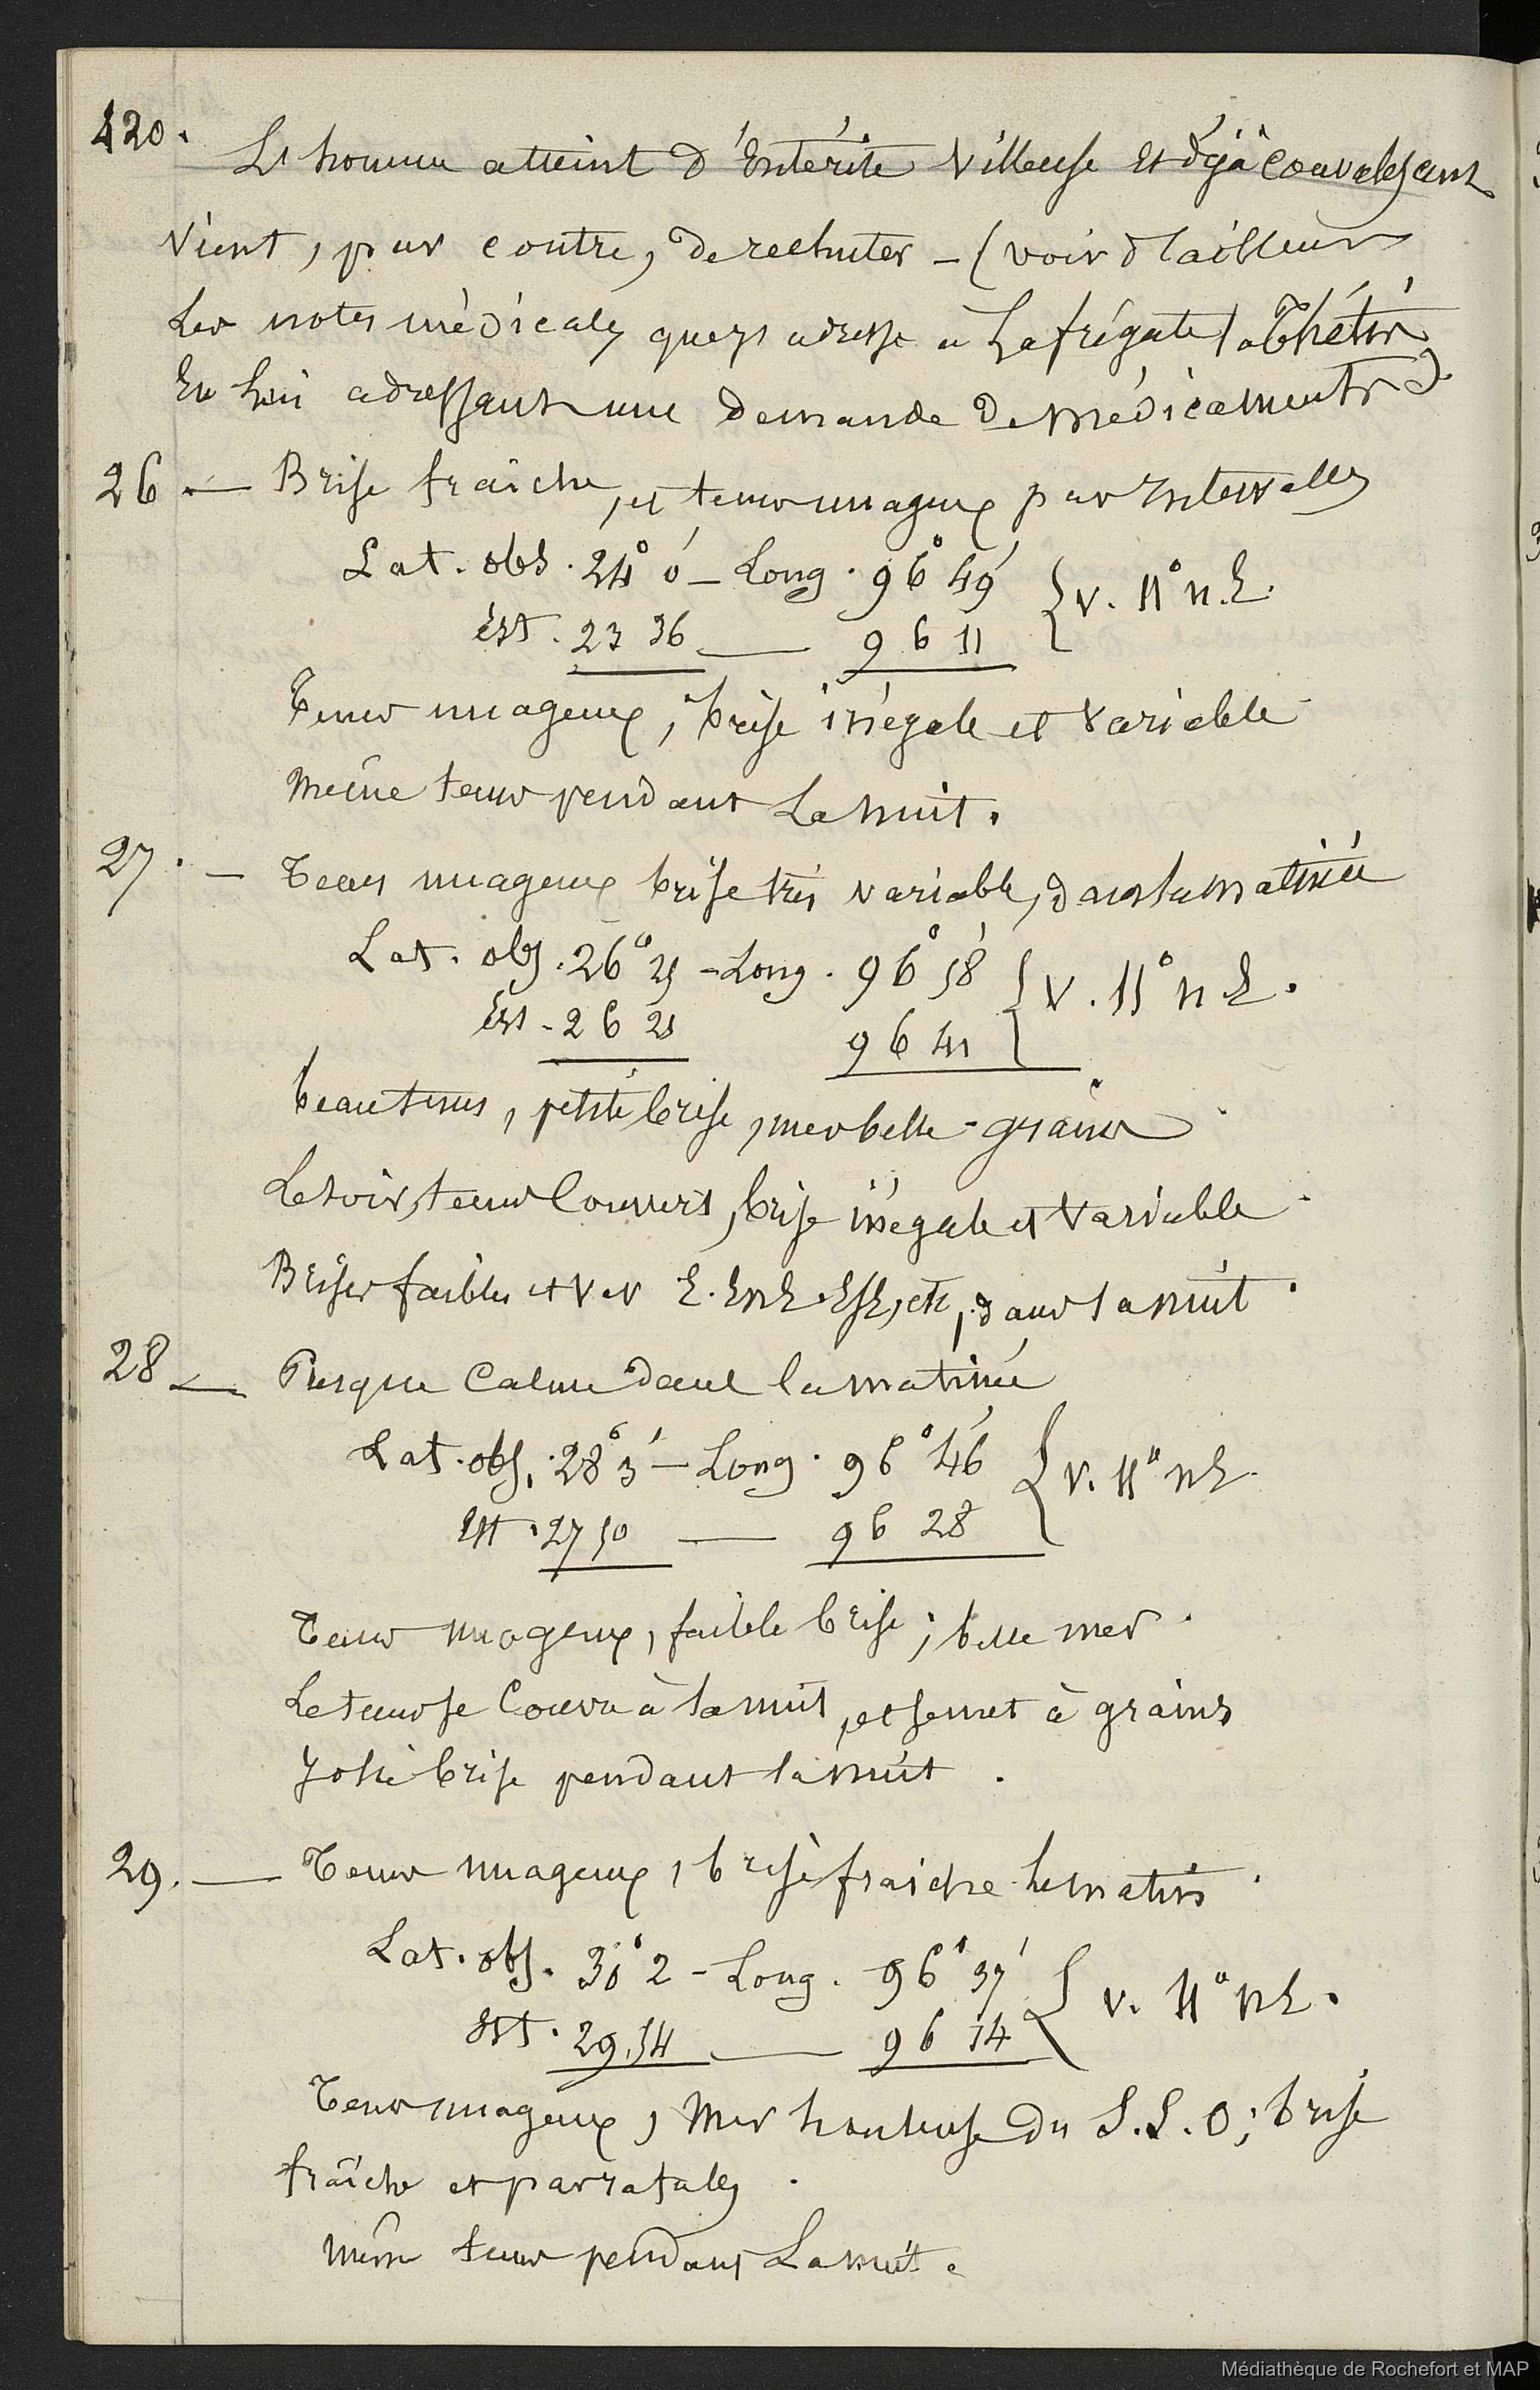 420.
Le homme atteint d'Entérite villeuse et déjà convalescent
vient, par contre, de rechuter - (voir d'ailleurs
les notes médicales que j'ai adressé a La frégate la Thétis
En lui adressant une demande de médicaments).
26 — Brise fraîche, et tems nuageux par Intervalles
Lat. obs. 24° 0' — Long. 96° 49' { V. 11° N.E.
Est. 23 36 — 96 11
Tems nuageux, brise inégale et variable
Même tems pendant la nuit.
27. — Tems nuageux brise très variable, dans la matinée
Lat. obs. 26° 25 - Long. 96° 58' { V. 11° N E.
Est - 26 21 96 41
beau tems, petite brise, mer belle - grains
Le soir, tems couvert, brise inégale et variable
Brises faibles et V. v E. ENE. ESE, etc, dans la nuit.
28 — Presque calme dans la matinée
Lat. obs. 28° 3' — Long. 96° 46 { V. 11° NE.
Est. 27 50 — 96 28
Tems nuageux, faible brise; belle mer.
Le tems se couvre à la nuit, et se met à grains
Jolie brise pendant la nuit.
29. — Tems nuageux, brise fraiche le matin.
Lat. obs. 30° 2 - Long. 96° 37' { V. 11° NE.
Est. 29,54 — 96 14
Tems nuageux, Mer houleuse du S.S.O; brise
fraîche et par rafales.
même tems pendant La nuit.
Médiathèque de Rochefort et MAP